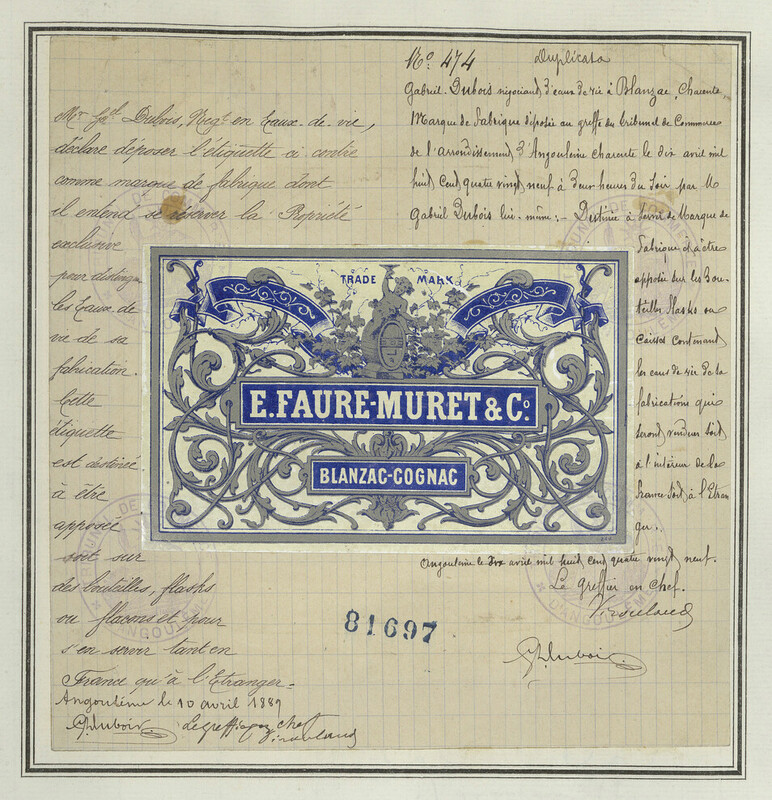 No. 474 Duplicata
Mr. Gel. Dubois, Negt. en Eaux-de-vie,
déclare déposer l'étiquette ci contre
comme marque de fabrique dont
il entend se réserver la Propriété
exclusive
pour distinguer
les Eaux de
vie de sa
fabrication.
Cette
étiquette
est destinée
à être
apposée
soit sur
des bouteilles, flasks
ou flacons et pour
s'en servir tant en
France qu'à l'Etranger =
Angoulême le 10 avril 1889
GDubois Le greffier en chef
Gabriel Dubois négociant d'eaux de vie à Blanzac, Charente
Marque de fabrique déposée au greffe du tribunal de Commerce
de l'arrondissement d'Angoulême charente le dix avril mil
huit cent quatre vingt neuf à deux heures du soir par M
Gabriel Dubois lui-même :- Destinée à servir de Marque de
fabrique et à être
apposée sur les Bou-
teilles flasks ou
caisses contenant
les eaux de vie de sa
fabrication qui
seront vendues soit
à l'intérieur de la
france soit à l'Etran
ger.
Angoulême le dix avril mil huit cent quatre vingt neuf.
Le greffier en chef.
GDubois
TRADE MARK
E. FAURE-MURET & Co.
BLANZAC-COGNAC
81697